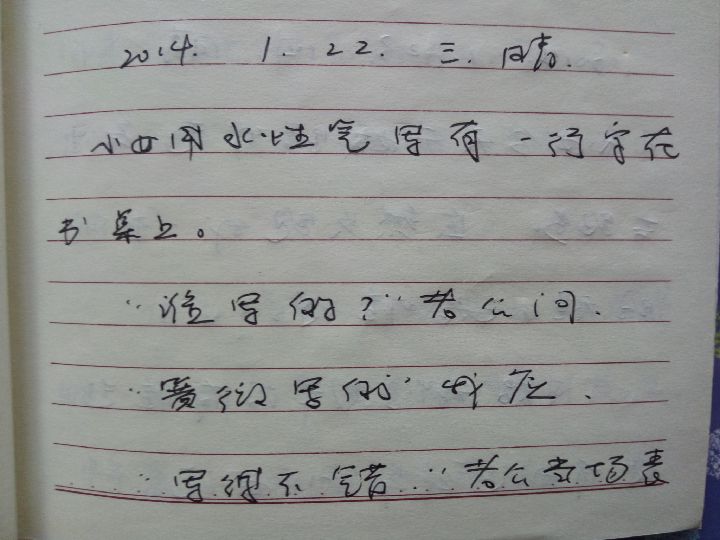 2014. 1. 22. 三. 晴.
小女用水性笔写有一行字在
书桌上。
"谁写的?"老公问.
"写的"我应.
"写得不错"老公当场表